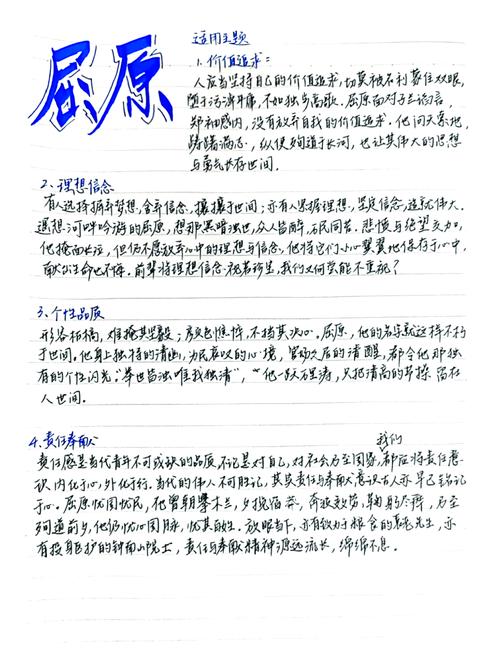 屈原
适用主题
1. 价值追求：
人应当坚持自己的价值追求，切莫被名利蒙住双眼，
堕于污淖市庸，不如独步高歌。屈原面对子兰谄言，
郑袖惑内，没有放弃自我的价值追求。他问天喜地，
踌躇满志，纵使殉道于长河，也让其伟大的思想
与勇气长存世间。
2、理想信念
有人选择摒弃梦想，舍弃信念，攘攘于世间；亦有人紧握理想，坚定信念，造就伟大。
遥想河畔吟游的屈原，想那黑暗浊世，众人皆醉，
悲愤与绝望交加。
他掩面长泣，但仍不愿放弃心中的理想与信念，他将它们小心翼翼地保存于心中，
献出生命也不悔。前辈将理想信念视若珍宝，我们又何尝能不重视？
3、个性品质
形容枯槁，难掩其坚毅；颜色憔悴，不挡其决心。屈原，他的名字就这样不朽
于世间。他身上独特的清幽，为民哀叹的心境，
久居的清醒，都令他那独
有的个性闪光。“举世皆浊唯我独清”，“他一跃
涛，只把清高的节操留在
人世间。
4. 责任奉献
我们
责任感是当代青年不可或缺的品质，不论是对自己，对社会乃至国家，都应将责任意
识内化于心，外化于行。当代的伟人不可胜记，其实责任与奉献意识古人亦早已铭记
于心。屈原忧国忧民，他曾朝搴木兰，夕揽宿莽，奔走效劳，鞠躬尽瘁，乃至
殉道前夕，他仍忧心国脉，忧其的姓。放眼当下，亦有致力于粮食的袁老先生，亦
有投身医护的钟南山院士，责任与奉献精神源远流长，绵绵不息。